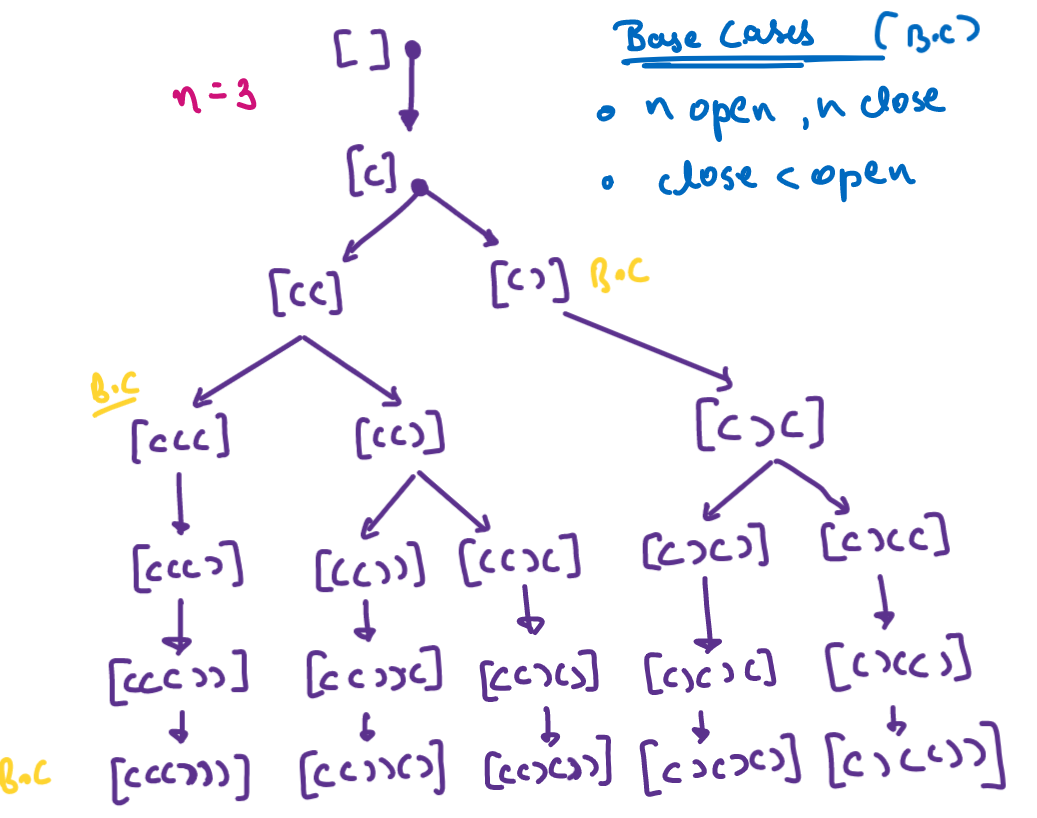 [ ]
Base Cases (B.C)
n = 3
• n open, n close
[(]
• close < open
[((]
[()] B.C
B.C
[(((]
[(()]
[()(]
[((()]
[(())]
[(()(]
[()()]
[()((]
[((())]
[(())(]
[(()()]
[()()(]
[()(()]
B.C
[((()))]
[(())()]
[(()())]
[()()()]
[()(())]